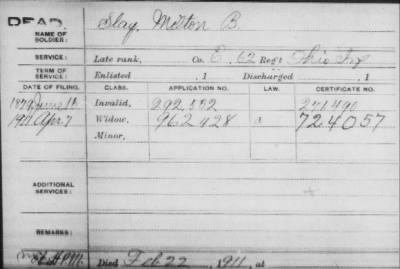 DEAD.
NAME OF SOLDIER: Slay, Melton B.
SERVICE: Late rank, Co. E, 62 Reg't Ohio Inf
TERM OF SERVICE: Enlisted , 1 Discharged , 1
DATE OF FILING. CLASS. APPLICATION NO. LAW. CERTIFICATE NO.
1879 June Invalid, 292,522 271490
1911 Apr. 7 Widow, 962428 a 724057
Minor,
ADDITIONAL SERVICES:
REMARKS:
Died Feb. 22, 1911, at